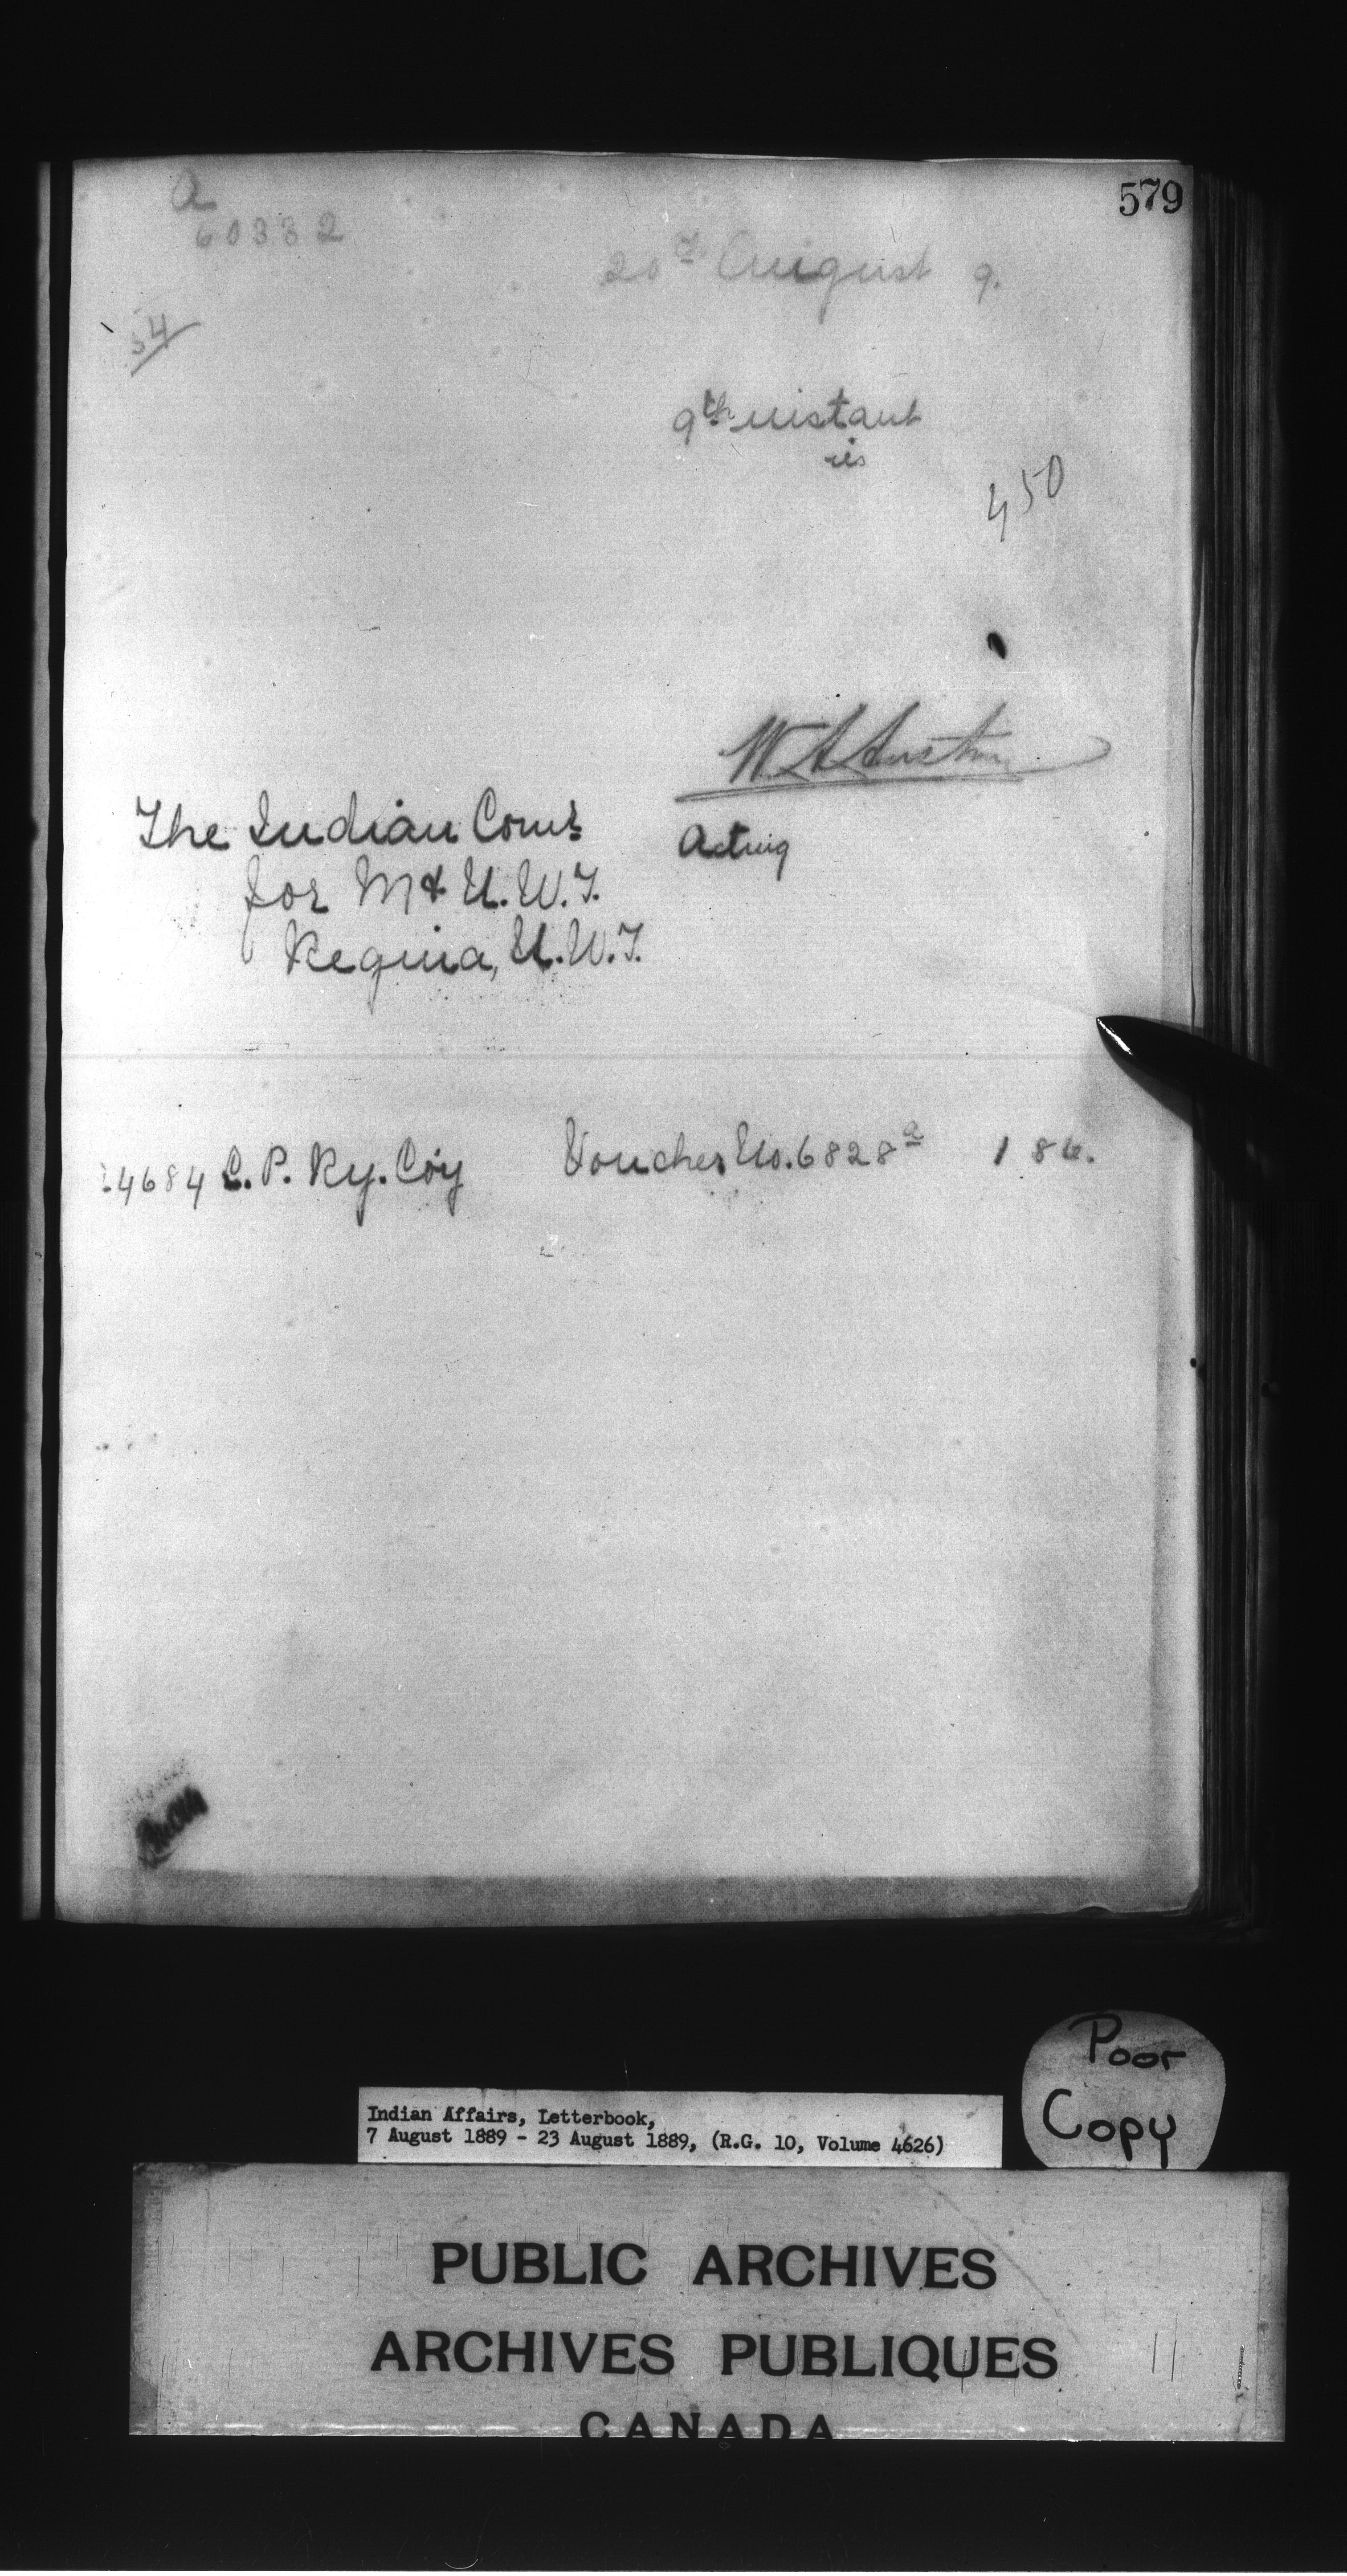 579
a
60332
20th August 9.
54
9th instant
is
450
W A Austin
Acting
The Indian Comr
for M & N.W.T.
Regina, N.W.T.
4684 C.P. Ry. Coy Voucher No. 6828a 1 86.
Poor
Copy
Indian Affairs, Letterbook,
7 August 1889 - 23 August 1889, (R.G. 10, Volume 4626)
PUBLIC ARCHIVES
ARCHIVES PUBLIQUES
CANADA